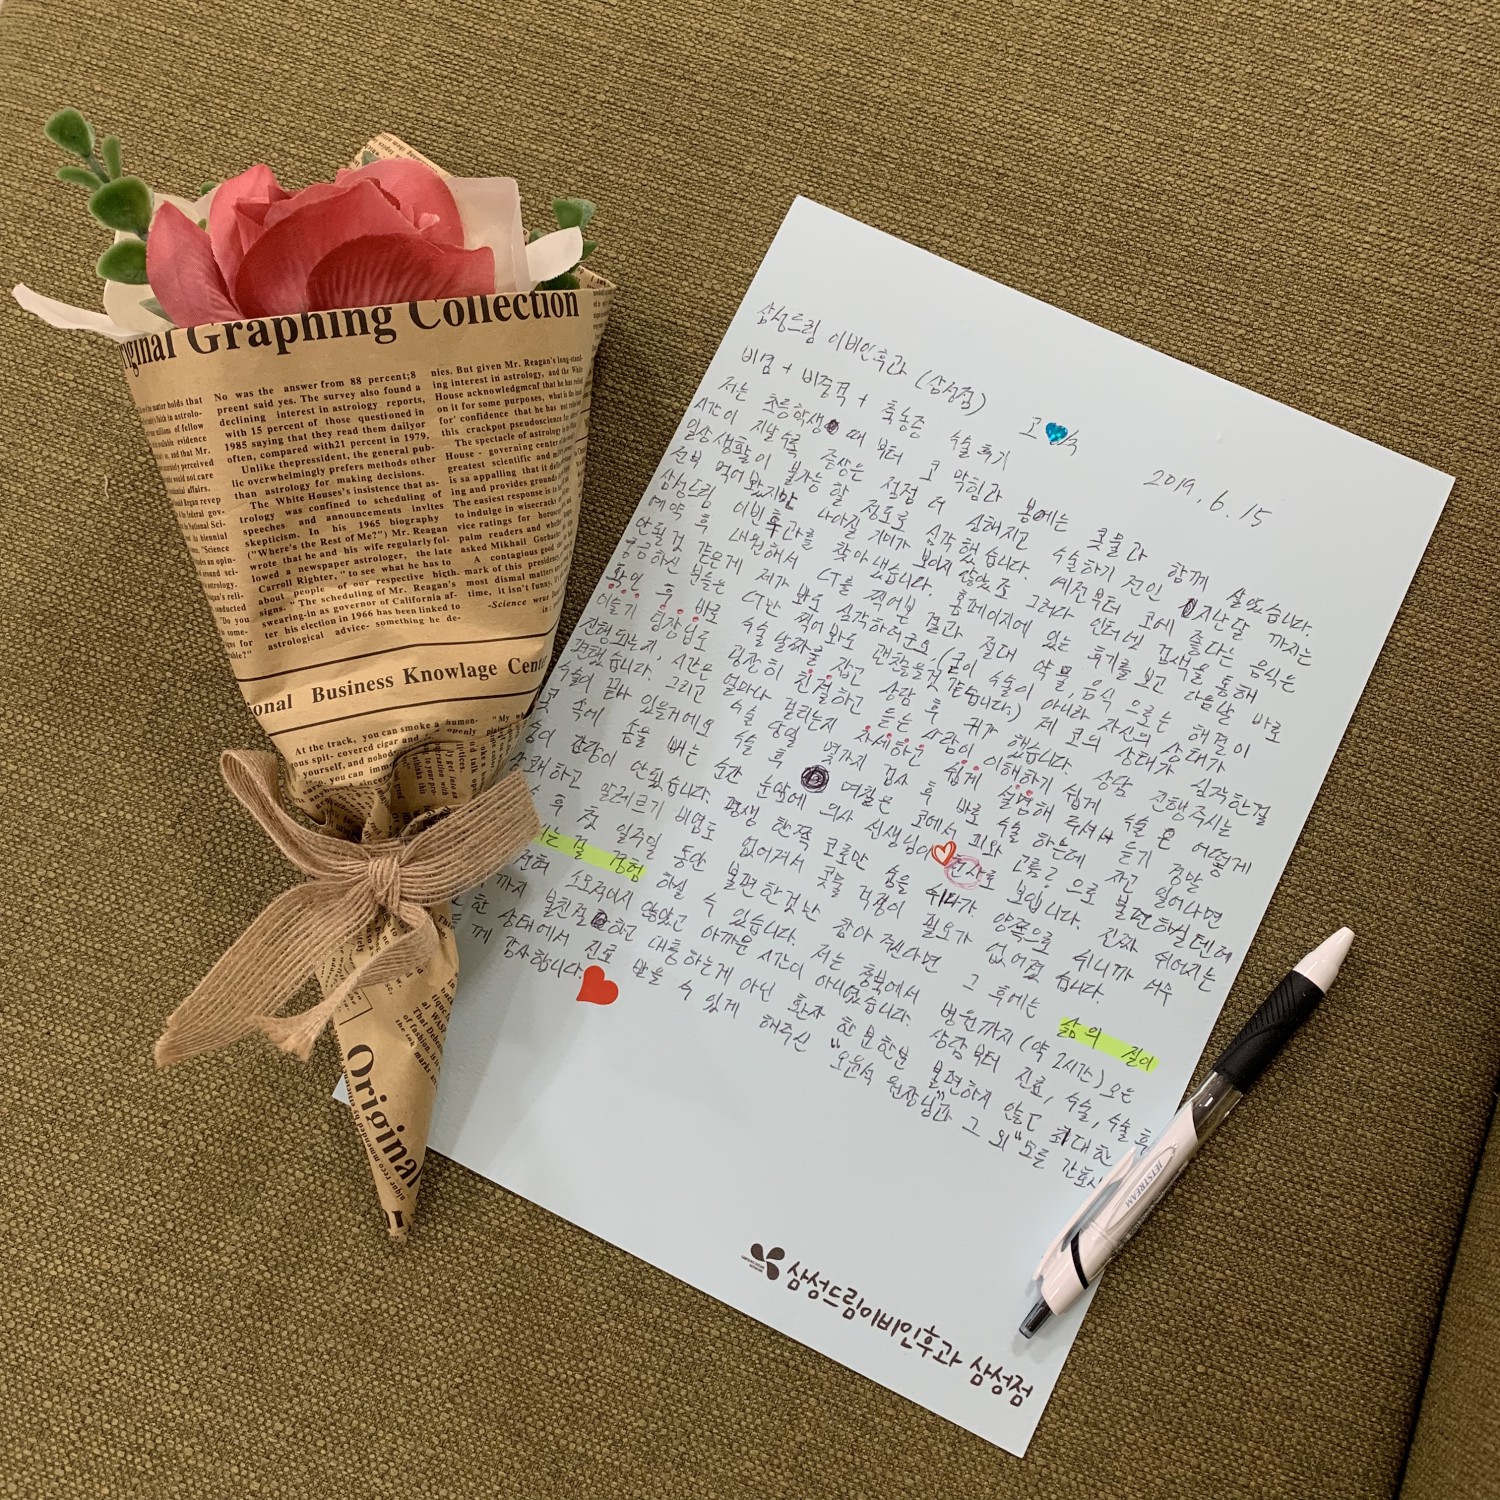 iginal Graphing Collection
No was the answer from 88 percent;8
preent said yes. The survey also found a
declining interest in astrology reports,
with 15 percent of those questioned in
1985 saying that they read them dailyor
often, compared with21 percent in 1979,
Unlike thepresident, the general pub-
lic overwhelmingly prefers methods other
than astrology for making decisions.
The White Houses's insistence that as-
trology was confined to scheduling of
speeches and announcements invites
skepticism. In his 1965 biography
("Where's the Rest of Me?") Mr. Reagan
wrote that he and his wife regularly fol-
lowed a newspaper astrologer, the late
Carroll Righter, "to see what he has to
about people of our respective birth
signs." "The scheduling of Mr. Reagan's
swearing-in as governor of California af-
ter his election in 1966 has been linked to
astrological advice- something he de-
nies. But given Mr. Reagan's long-stand-
ing interest in astrology, and the White
House acknowledgmcnf that he has
on it for some purposes, what is the
for' confidence that he has not
this crackpot pseudoscience for
The spectacle of astrology in the
House - governing center of
greatest scientific and
is sa appalling that it
ing and provides ground
The easiest response is to
to indulge in wisecracks
vice ratings for horosc
palm readers and whether
asked Mikhail Gorbach
A contagious good
mark of this presidency
most dismal matters
time, it isn't funny.
-Science
ional Business Knowlage Cente
At the track, you can smoke a human-
ous spit- covercd cigar and openly
yourself, and nobody
you can imm
Original
삼성드림 이비인후과 (삼성점)
2019. 6. 15
비염 + 비중격 + 축농증 수술 후기
저는 초등학생 때 부터 코 막힘과 봄에는 콧물과 함께 살았습니다.
시간이 지날수록 증상은 점점 더 심해지고 수술하기 전인 지난달 까지는
일상생활이 불가능 할 정도로 심각했습니다. 예전부터 코에 좋다는 음식은
전부 먹어 봤지만 나아질 기미가 보이지 않았고 그러다 인터넷 검색을 통해
삼성드림 이비인후과를 찾아냈습니다. 홈페이지에 있는 후기를 보고 다음날 바로
예약 후 내원해서 CT를 찍어본 결과 절대 약물, 음식 으로는 해결이
안될것 같은게 제가 봐도 심각하더군요, (굳이 수술이 아니라 자신의 상태가
궁금하신 분들은 CT만 찍어봐도 괜찮을것 같습니다.) 제 코의 상태가 심각한걸
확인 후 바로 수술 날짜를 잡고 상담 후 귀가 했습니다. 상담 진행주시는
이슬기 팀장님도 굉장히 친절하고 듣는 사람이 이해하기 쉽게 수술은 어떻게
진행되는지, 시간은 얼마나 걸리는지 자세하고 쉽게 설명해 주셔서 듣기 정말
편했습니다. 그리고 수술 당일 몇가지 검사 후 바로 수술 하는데 자고 일어나면
수술이 끝나 있을거에요 수술 후 며칠은 코에서 피와 고름? 으로 불편하실텐데
코 속에 솜을 빼는 순간 눈앞에 의사 선생님이 천사로 보입니다. 진짜 쉬어지는
숨이 감당이 안됬습니다. 평생 한쪽 코로만 숨을 쉬다가 양쪽으로 쉬니까 너무
상쾌하고 알레르기 비염도 없어져서 콧물 걱정이 필요가 없어졌습니다.
후 첫 일주일 동안 불편한것만 참아 주신다면 그 후에는 삶의 질이
지는 걸 경험 하실 수 있습니다. 저는 충북에서 병원까지 (약 2시간) 오는
전혀 소모적이지 않았고 아까운 시간이 아니었습니다. 상담부터 진료, 수술, 수술 후
까지 불친절하고 대충하는게 아닌 환자 한분한분 불편하지 않도록 최대한
한 상태에서 진료 받을 수 있게 해주신 "오윤석 원장님"과 그 외 "모든 간호사
께 감사합니다.
삼성드림이비인후과 삼성점
JETSTREAM